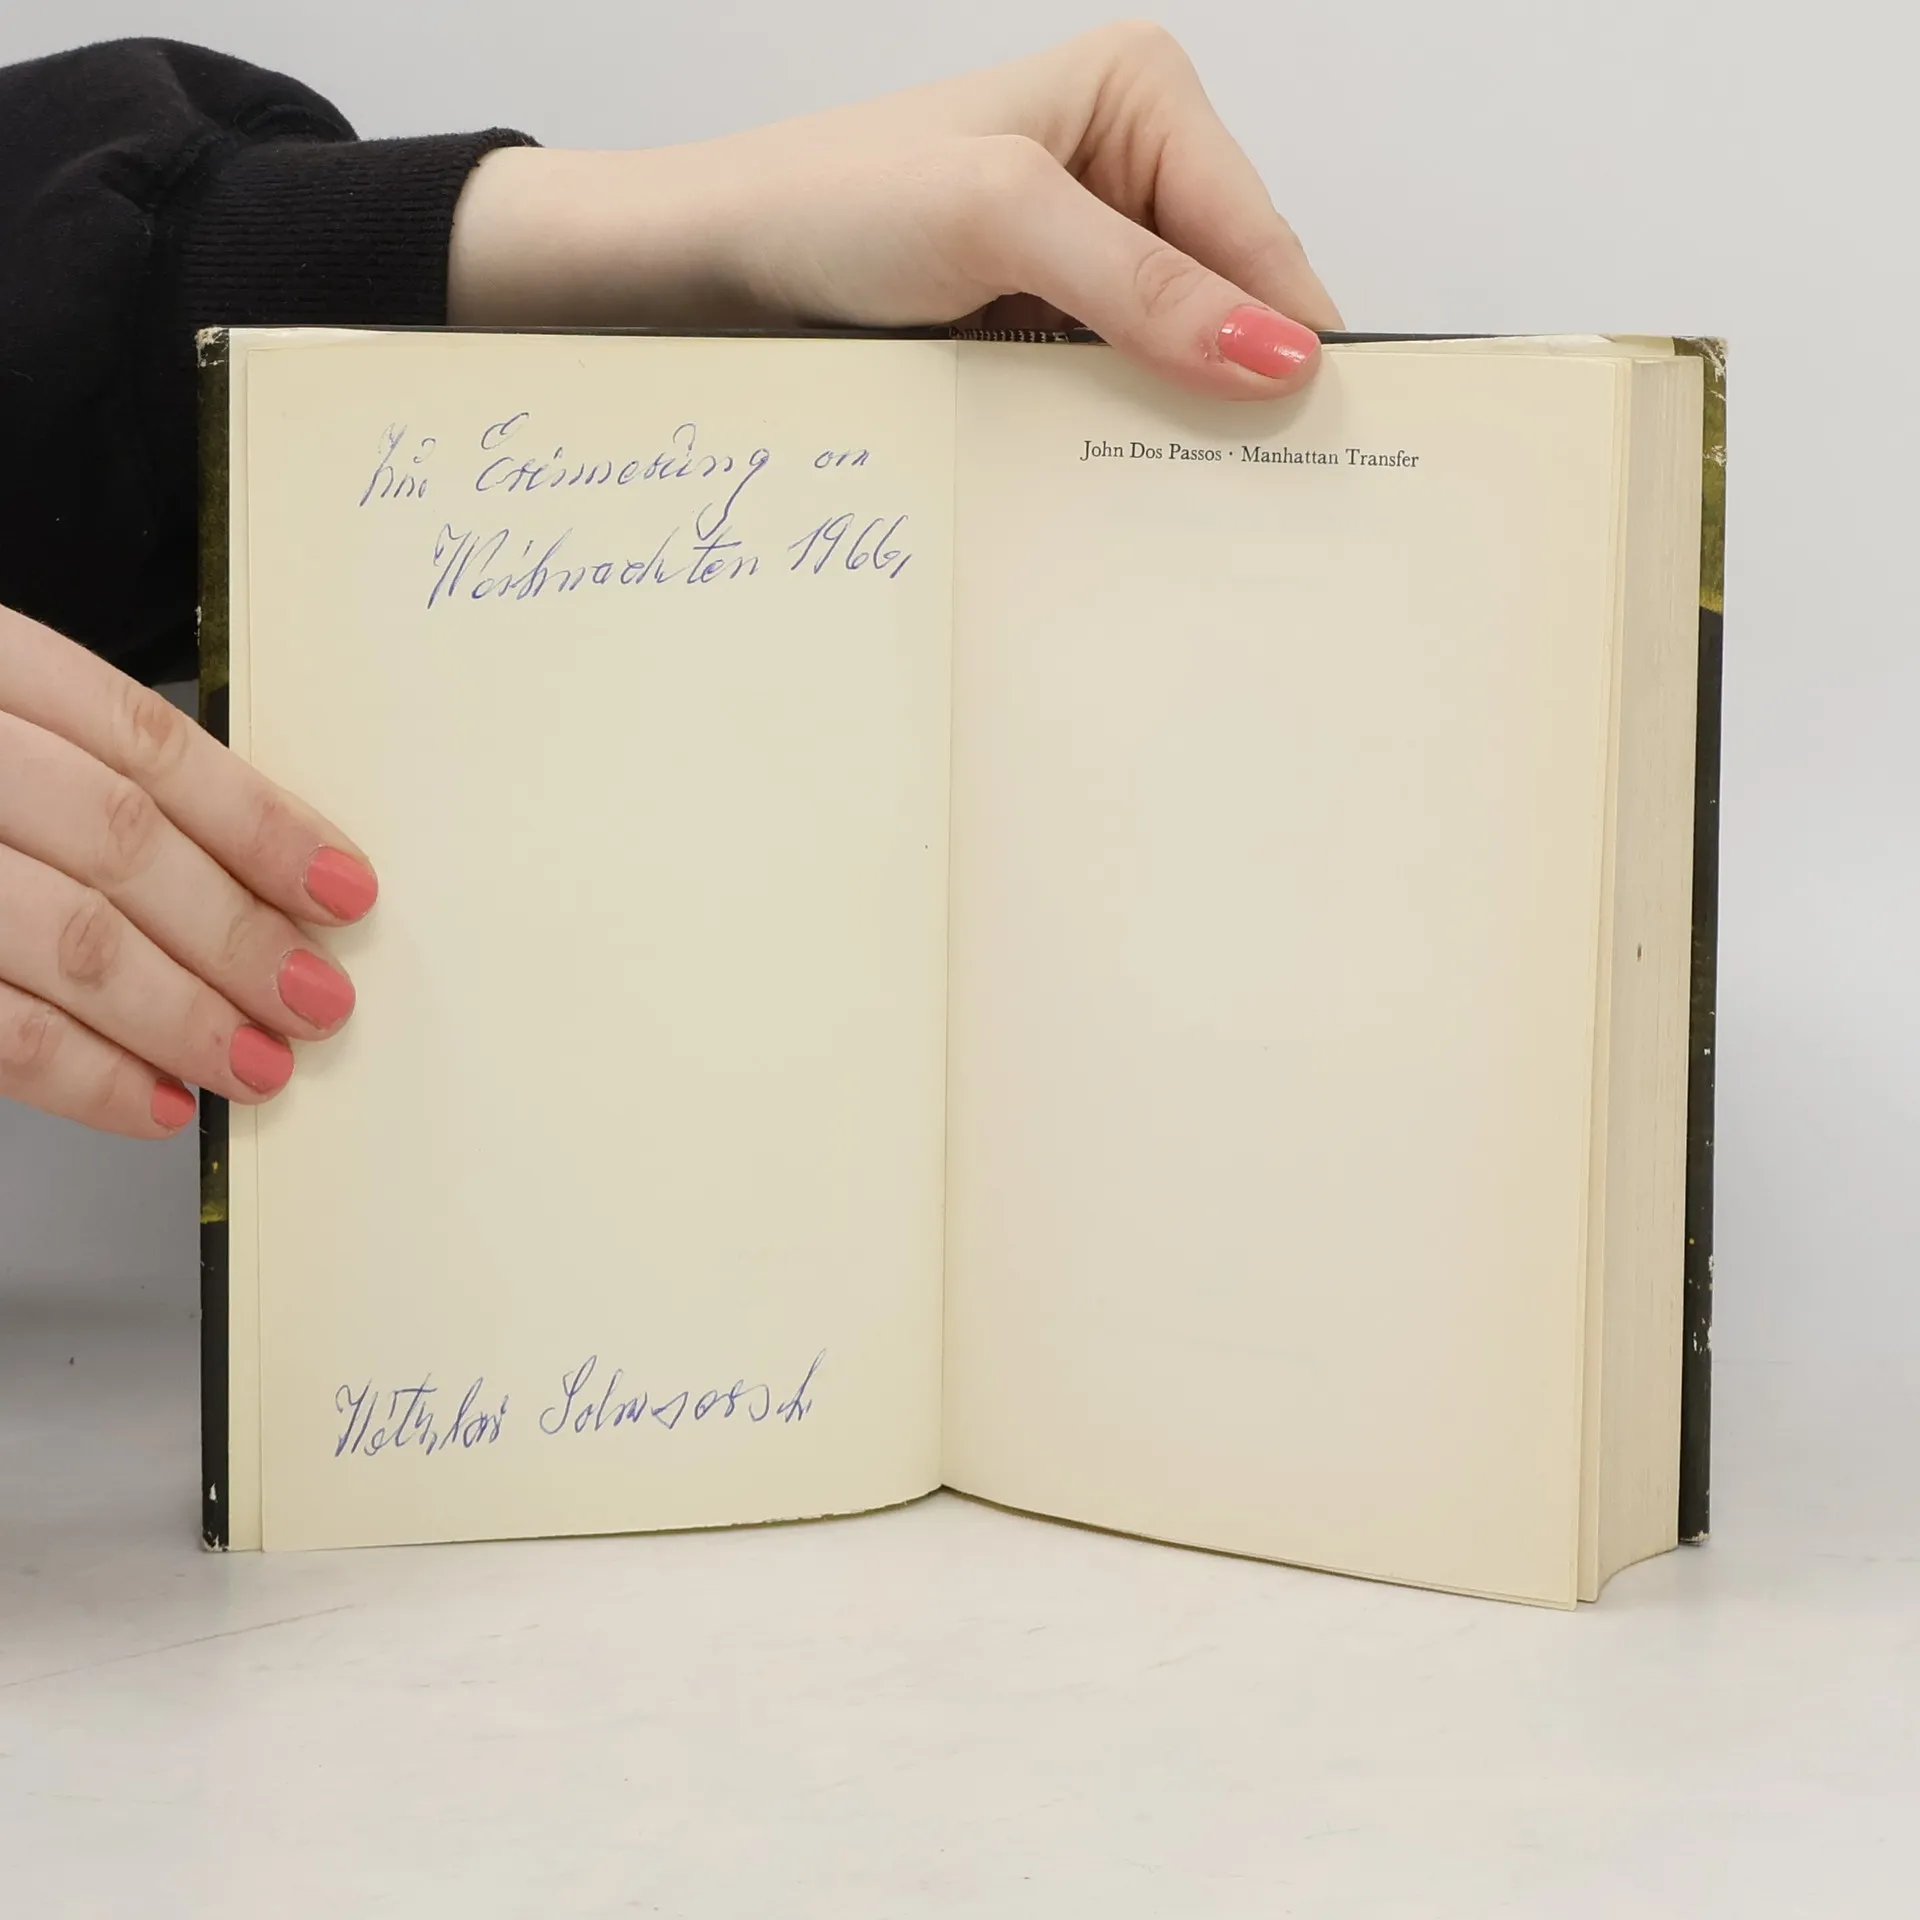 Zur Erinnerung an
Weihnachten 1966,
John Dos Passos · Manhattan Transfer